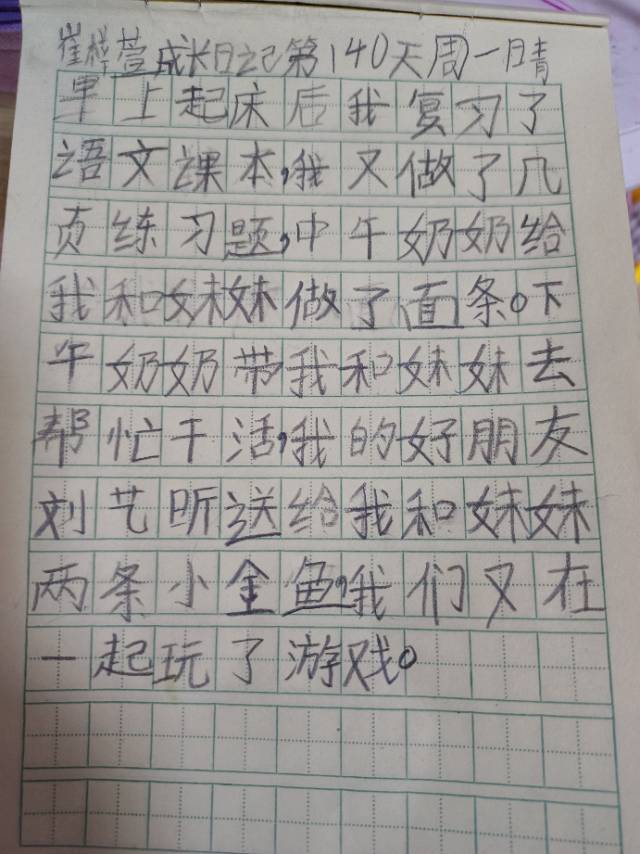 崔梓萱成长日记第140天周一晴
早上起床后我复习了
语文课本,我又做了几
页练习题,中午奶奶给
我和妹妹做了面条。下
午奶奶带我和妹妹去
帮忙干活,我的好朋友
刘艺昕送给我和妹妹
两条小金鱼,我们又在
一起玩了游戏。